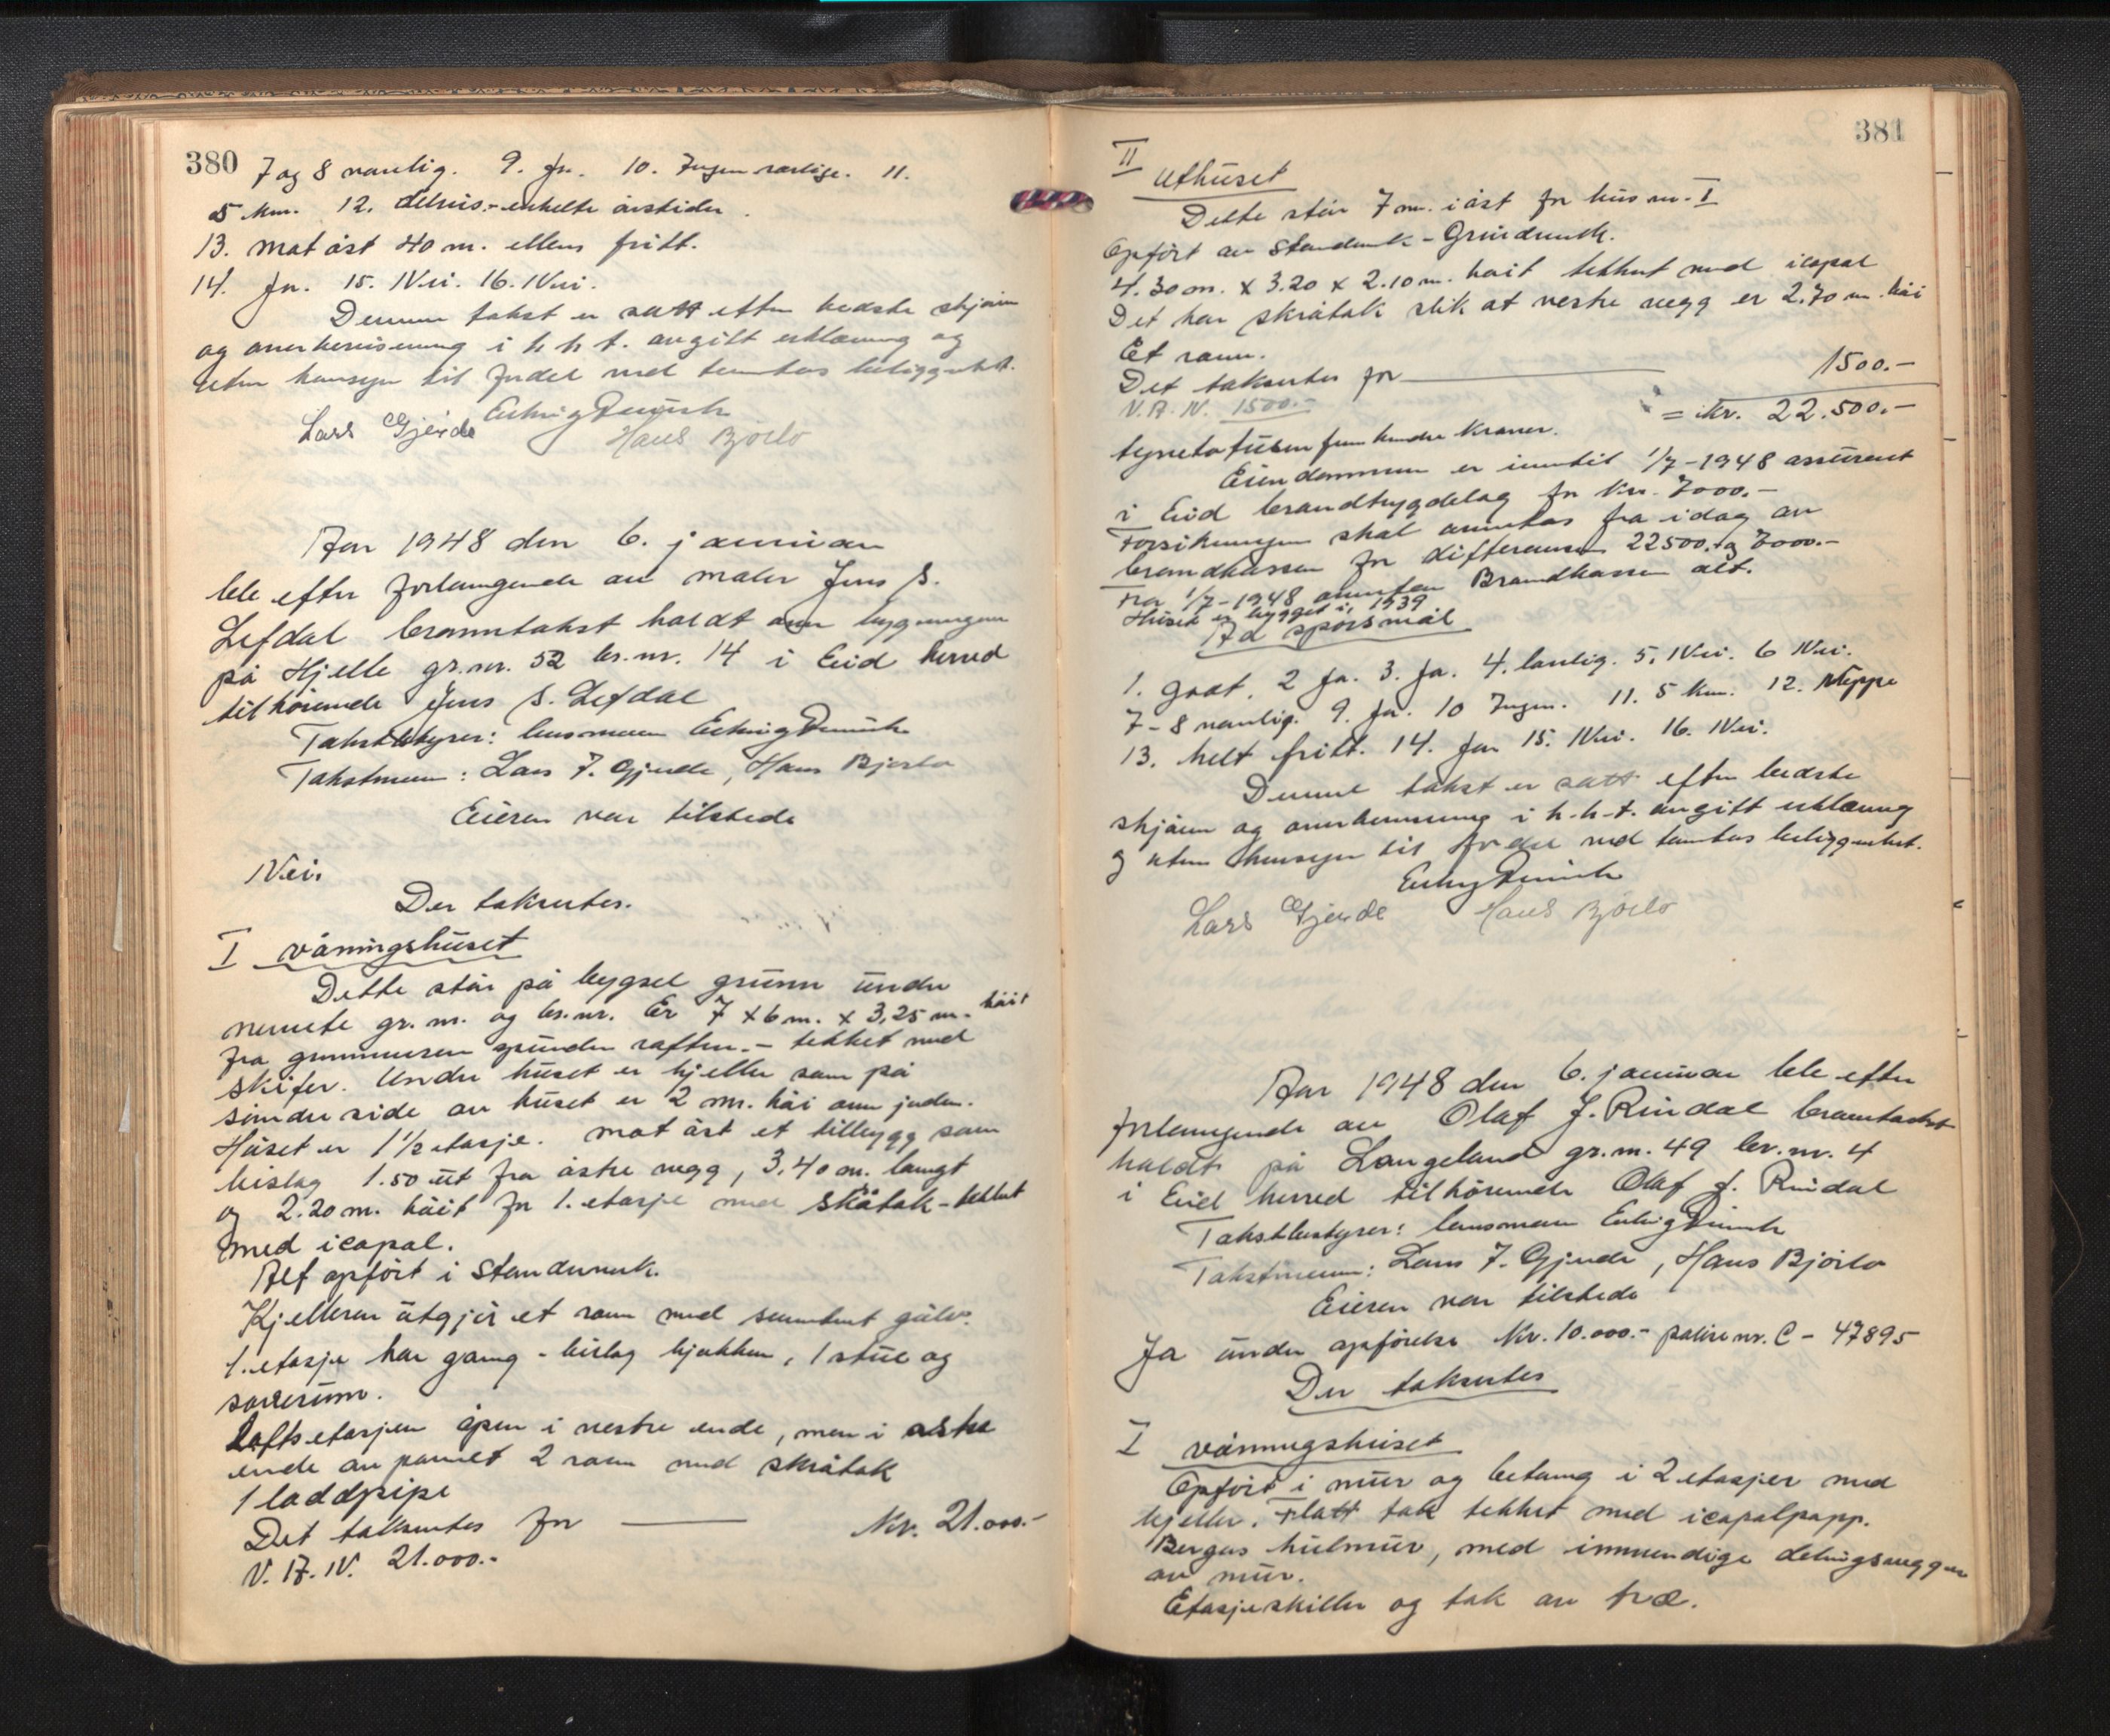 380
7 og 8 vanlig. 9. Ja. 10. Ingen særlige. 11.
5 km. 12. delvis - enkelte årstider.
13. mot øst 40 m. ellers fritt.
14. Ja. 15. Nei. 16. Nei.
Denne takst er satt efter bedste skjønn
og overbevisning i h h t. avgitt erklæring og
uten hensyn til fordel ved tomtas beliggenhet.
Lars Gjerde
Hans Bjørlo
Aar 1948 den 6. januar
ble efter forlangende av maler Jens S.
Lefdal branntakst holdt over bygningen
på Hjelle gr.nr. 52 br.nr. 14 i Eid herred
tilhørende Jens S. Lefdal
Takstbestyrer: lensmann
Takstmenn: Lars J. Gjerde, Hans Bjørlo
Eieren var tilstede
Nei.
Der takseres.
I våningshuset
Dette står på bygsel grunn under
nevnte gr.nr. og br.nr. Er 7 x 6 m. x 3,25 m. høit
fra grunnmuren under raften. - tekket med
skifer. Under huset er kjeller som på
søndre side av huset er 2 m. høi over jorden.
Huset er 1 1/2 etasje. mot øst et tilbygg som
bislag 1.50 ut fra østre vegg, 3.40 m. langt
og 2.20 m. høit for 1. etasje med skråtak - tekket
med icopal.
Alt opført i Standverk.
Kjelleren utgjør et rom med sementert gulv.
1. etasje har gang - bislag kjøkken, 1 stue og
soverum.
Loftsetasjen åpen i vestre ende, men i østre
ende av panelt 2 rom med skråtak
1 loddpipe
Det takseres for Kr. 21.000.-
V.B.N. 21.000.-
381
II
Uthuset
Dette står 7 m. i øst for hus nr. I
Opført av Standverk - Grindverk.
4.30 m. x 3.20 x 2.10 m. høit tekket med icopal
Det har skråtak slik at vestre vegg er 2.70 m. høi
Et rom.
Det takseres for 1500.-
V.B.N. 1500.- = Kr. 22.500.-
tjuetotusen fem hundre kroner.
Eiendommen er inntil 1/7-1948 assurert
i Eid brandbygdelag for kr. 7000.-
Forsikringen skal overtas fra idag av
brandkassen for differansen 22500 og 7000.-
Fra 1/7-1948 overtar Brandkassen alt.
Huset er bygget i 1939
Ad spørsmål
1. godt. 2 Ja. 3. Ja. 4. vanlig. 5. Nei. 6 Nei.
7-8 vanlig. 9. Ja. 10 Ingen. 11. 5 km. 12. Neppe
13. helt fritt. 14. Ja 15. Nei. 16. Nei.
Denne takst er satt efter bedste
skjønn og overbevisning i h-h-t. avgitt erklæring
og uten hensyn til fordel ved tomtas beliggenhet.
Lars Gjerde Hans Bjørlo
Aar 1948 den 6. januar ble efter
forlangende av Olaf J. Rindal branntakst
holdt på Langeland gr.nr. 49 br.nr. 4
i Eid herred tilhørende Olaf J. Rindal
Takstbestyrer: lensmann
Takstmenn: Lars J. Gjerde, Hans Bjørlo
Eieren var tilstede
Ja under opførelse Kr. 10.000.- polise nr. C - 47895
Der takseres
I våningshuset
Opført i mur og betong i 2 etasjer med
kjeller. Flatt tak tekket med icopalpapp.
Bergens hulmur, med innvendige delingsvegger
av mur.
Etasjeskiller og tak av træ.